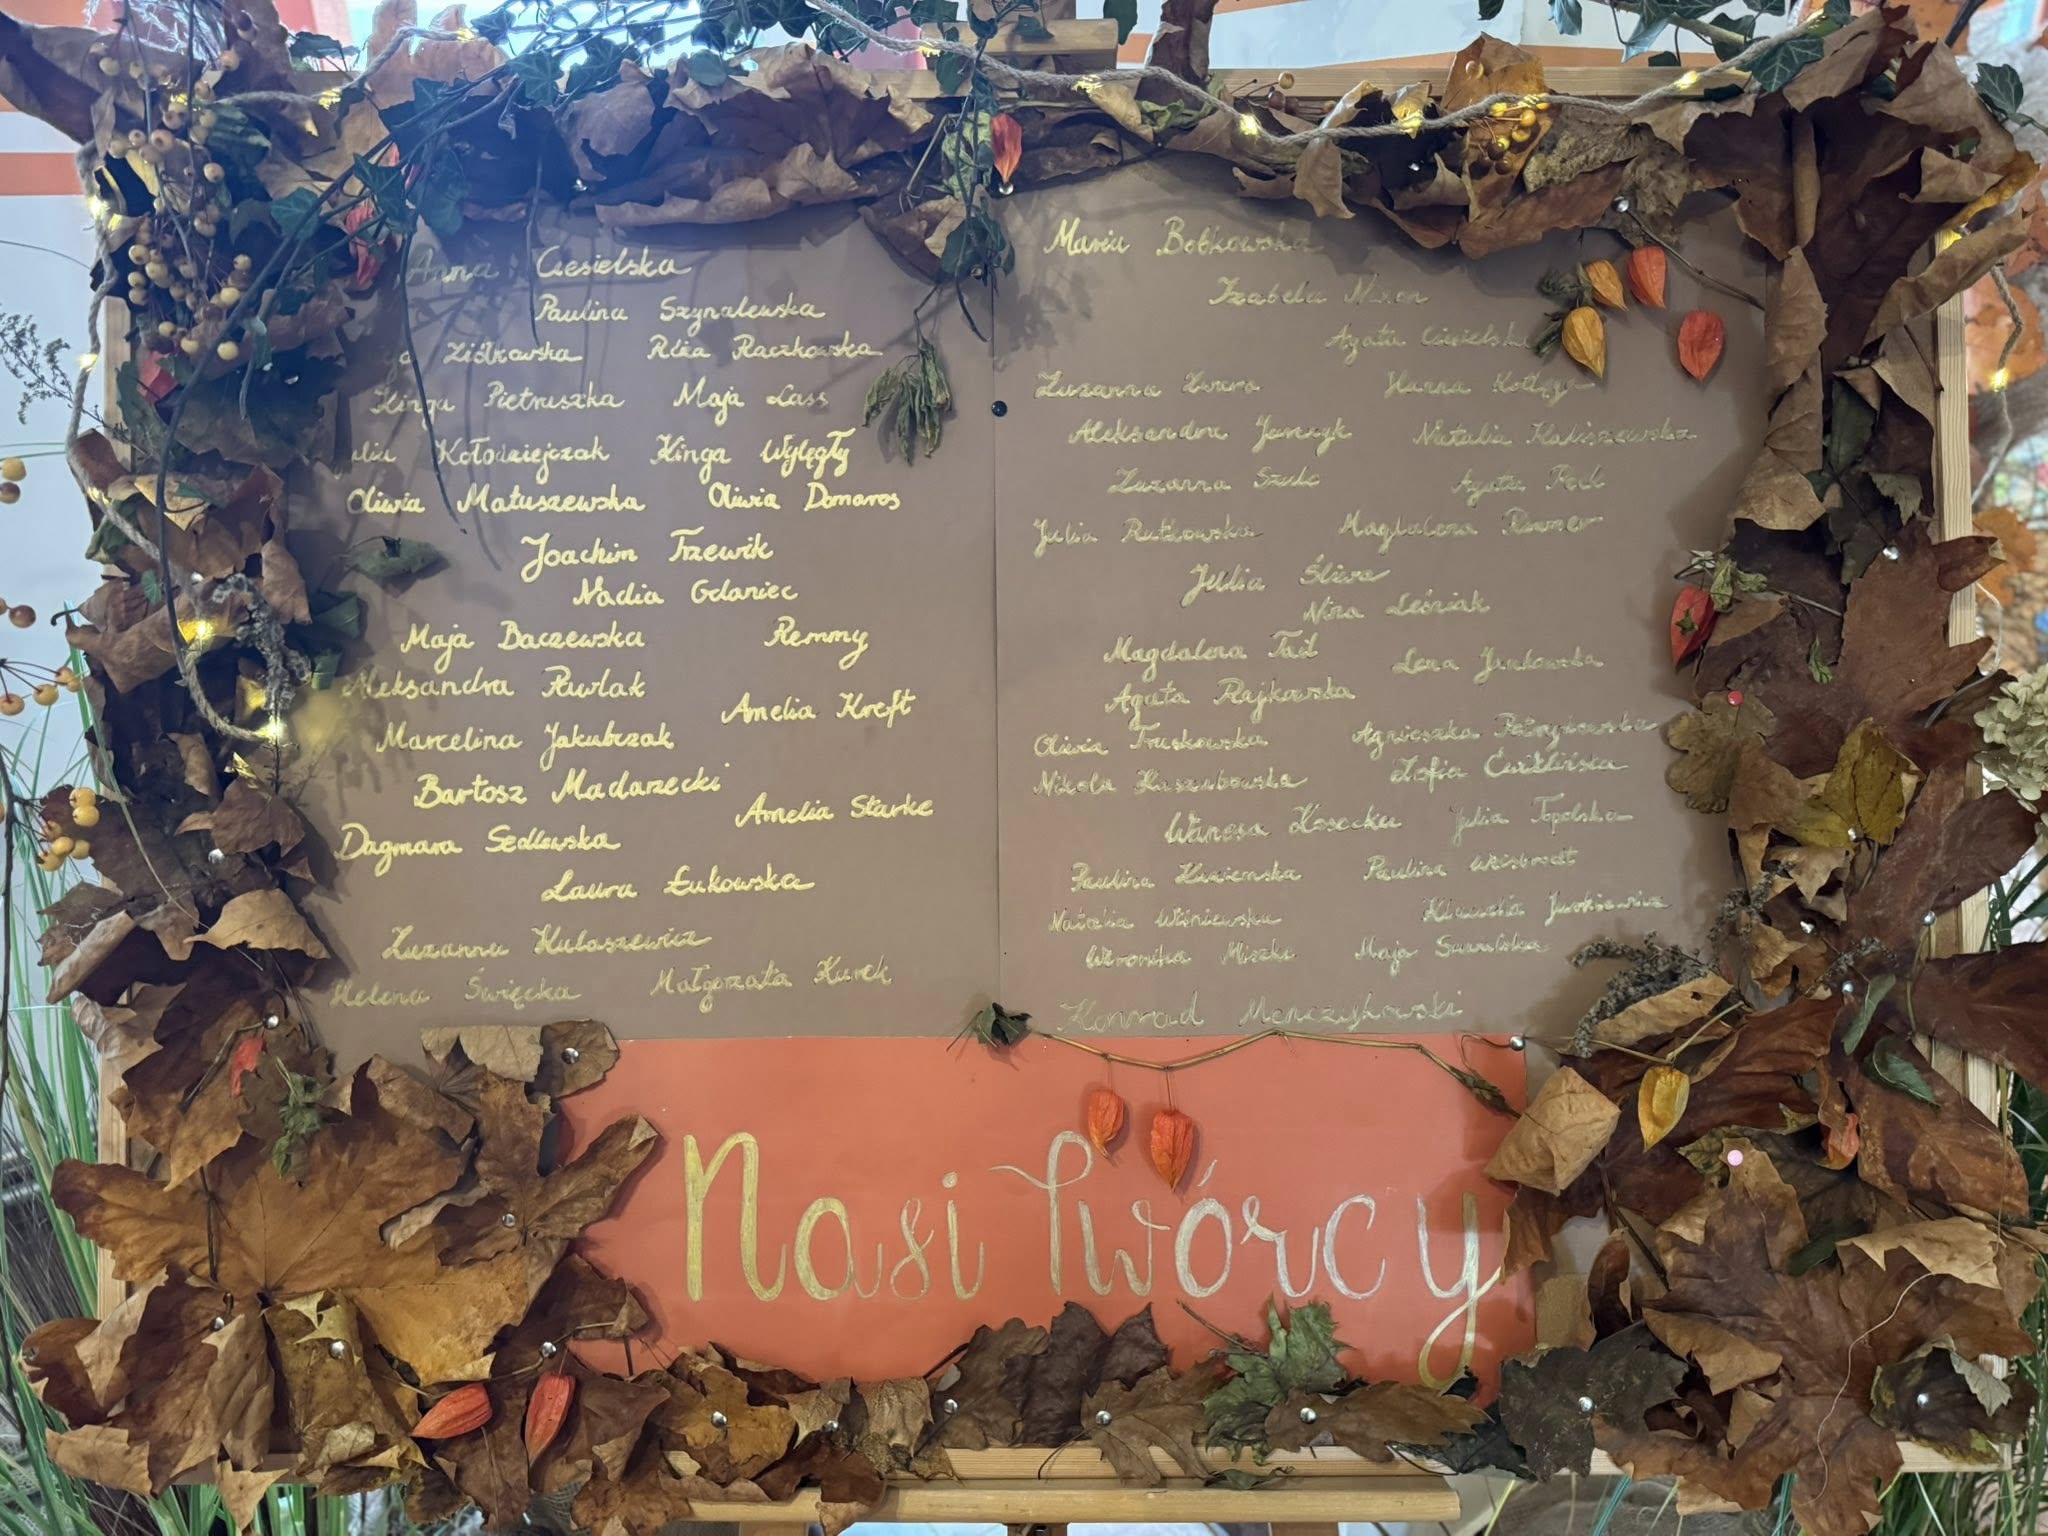 Anna Ciesielska
Paulina Szynalewska
Ziółkowska Róża Raczkowska
Kinga Pietruszka Maja Lass
Kołodziejczak Kinga Wylęgły
Oliwia Matuszewska Oliwia Domaros
Joachim Trzewik
Nadia Gdaniec
Maja Baczewska Remmy
Aleksandra Pawlak
Amelia Kreft
Marcelina Jakubczak
Bartosz Madarzecki
Amelia Starke
Dagmara Sedlewska
Laura Łukowska
Zuzanna Kulaszewicz
Helena Święcka Małgorzata Kurek
Maria Bobkowska
Izabela Nixon
Agata Ciesielska
Zuzanna Hanna
Aleksandra Jarczyk Natalia Kaliszewska
Zuzanna Szulc Agata
Julia Rutkowska Magdalena
Julia Śliwa
Nina Leśniak
Magdalena Tail
Lena Jankowska
Agata Rajkowska
Oliwia Truskowska Agnieszka
Nikola Kaszubowska Zofia Ćwiklińska
Wanesa Kosecka Julia Topolska
Paulina Paulina
Natalia Wiśniewska Klaudia Jurkiewicz
Weronika Miszke Maja
Konrad Menczykowski
Nasi Twórcy